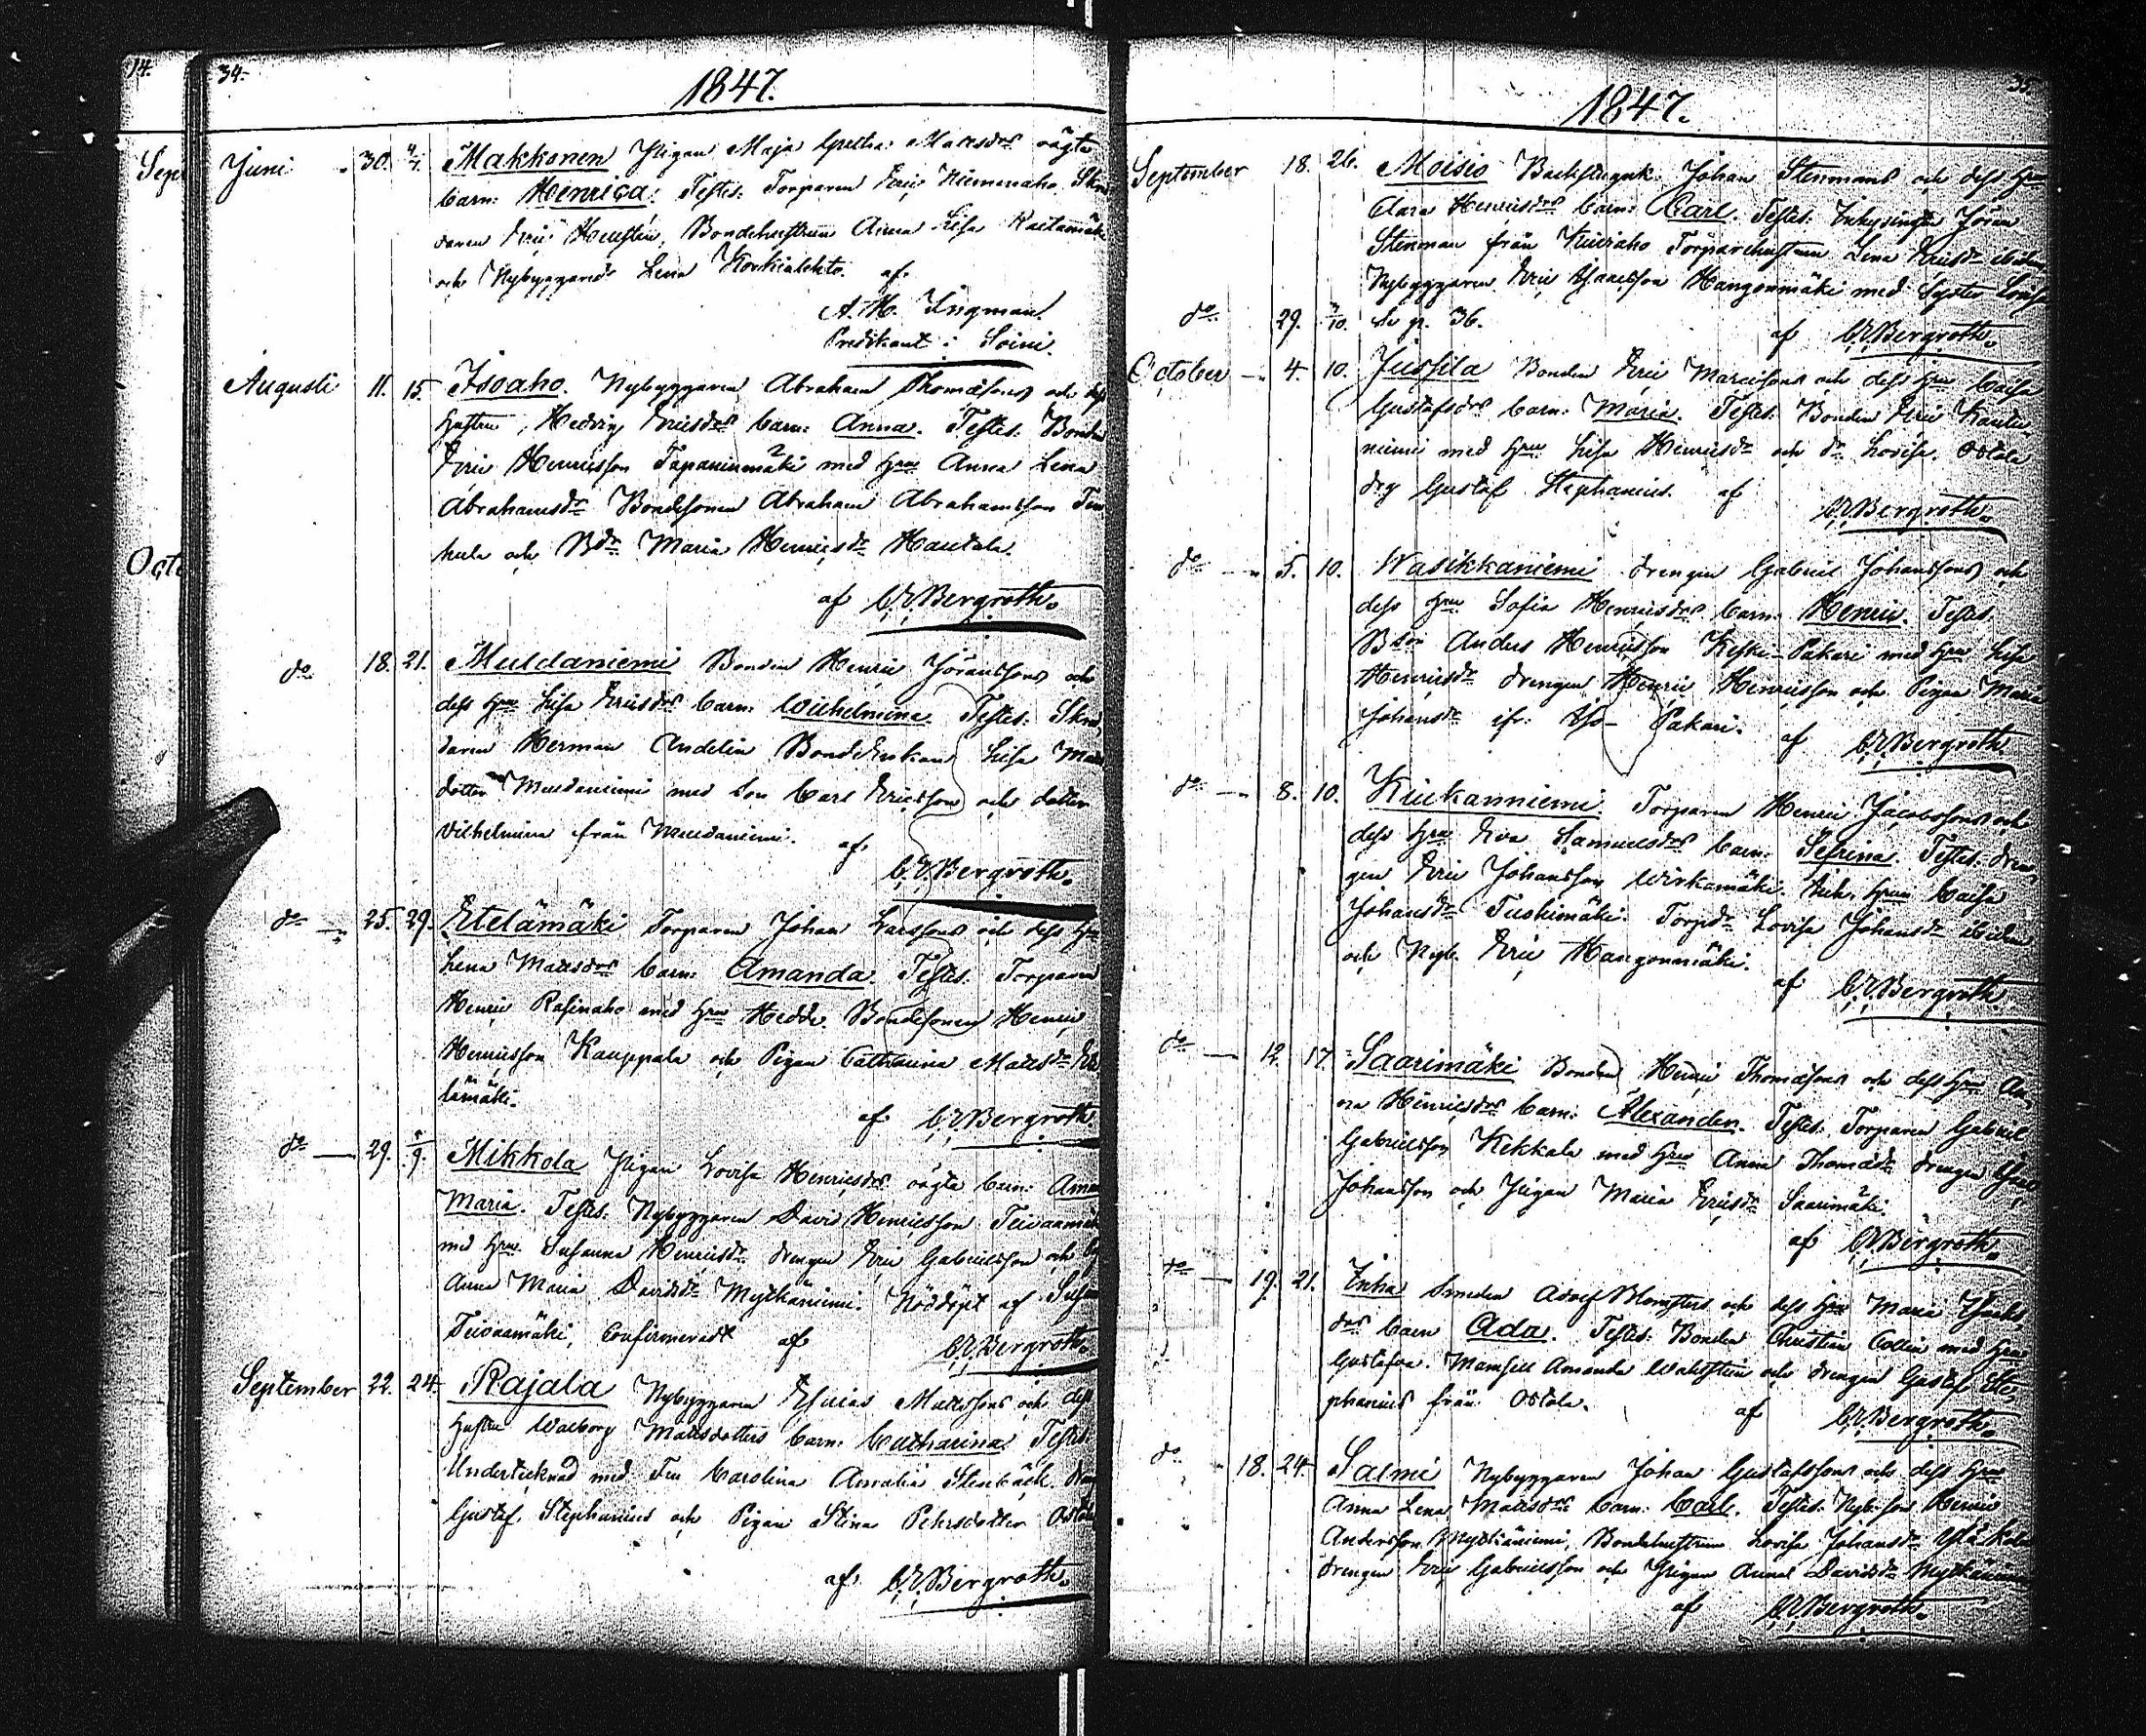 14.
Sept
Octo
34.
1847.
Juni 30. 4/7. Makkonen Pigan Maja Greta Mattsdrs oägta
barn: Henrica. Testes: Torparen Eric Niemenaho. Skräd
daren Eric Bondehustrun Anna Lisa
och Nybyggareds Lena Korkialehto. af.
A. H. Ingman.
Predikant i Soini.
Augusti 11. 15. Isoaho. Nybyggaren Abraham Thomassons och dess
hustru Hedvig Ericsdrs barn: Anna. Testes: Bonden
Eric Henricsson Tapaninmäki med hru Anna Lena
Abrahamsdr Bondesonen Abraham Abrahamsson
och Bdr Maria Henricsdr Hautala.
af C. E. Bergroth.
do 18. 21. Muldaniemi Bonden Henric Jöranssons och
dess hru Lisa Ericsdrs barn: Wilhelmina. Testes: Skräd
daren Herman Andelin Bondeenkan Lisa Matts
dotter Muldaniemi med son Carl Ericsson och dotter
Vilhelmina från Muldaniemi. af.
C. E. Bergroth.
do 25. 29. Etelämäki Torparen Johan Larssons och dess hru
Lena Mattsdrs barn: Amanda. Testes: Torparen
Henric Rasinaho med hru Hedda. Bondesonen Henric
Henricsson Kauppala och Pigan Catharina Mattsdr Ete
lämäki.
af C. E. Bergroth
do 29. 5/9. Mikkola Pigan Lovisa Henricsdrs oägta barn: Anna
Maria. Testes: Nybyggaren David Henricsson Teivaamäki
med hru Susanna Henricsdr drengen Eric Gabrielsson och
Anna Maria Davidsdr Mytkäniemi. Nöddöpt af
Teivaamäki, Confirmeradt af C. E. Bergroth.
September 22. 24. Rajala Nybyggaren Elias Mattssons och dess
hustru Walborg Mattsdotters barn: Catharina. Testes:
Undertecknad med Fru Carolina Amalia Stenbäck. dreng
Gustaf Stephanius och Pigan Stina Pehrsdotter Ostola
af C. E. Bergroth.
35.
1847.
September 18. 26. Moisio Backstuguk. Johan Stenmans och dess hru
Clara Henricsdrs barn: Carl. Testes: Inhysingen Jöran
Stenman från Kuivaho Torparehustrun Lena Ericsdr ibidem
Nybyggaren Eric Isaacsson Hangonmäki med Syster Lovisa
do 29. 3/10. Se p. 36. af C. E. Bergroth.
October 4. 10. Jussila Bonden Eric Marcissons och dess hru Caisa
Gustafsdrs barn: Maria. Testes: Bonden Eric Kautu
niemi med hru Lisa Henricsdr och dr Lovisa. Ostola
drg Gustaf Stephanius. af C. E. Bergroth.
do 5. 10. Wasikkaniemi drengen Gabriel Johanssons och
dess hru Sofia Henricsdrs barn: Henric. Testes:
Bson Anders Henricsson Keski-Pakari med hru Lisa
Henricsdr drengen Henric Henricsson och Pigan Maria
Johansdr ifr. Iso-Pakari. af C. E. Bergroth
do 8. 10. Kiukanniemi Torparen Henric Jacobssons och
dess hru Eva Samuelsdrs barn: Sefrina. Testes: dren
gen Eric Johansson Wirkamäki. hru Caisa
Johansdr Tuohimäki. Torpdr Lovisa Johansdr ibidem
och Nyb. Eric Hangonmäki. af C. E. Bergroth
do 12. 17. Saarimäki Bonden Henric Thomassons och dess hru An
na Henricsdrs barn: Alexander. Testes: Torparen Gabriel
Gabrielsson Kekkala med hru Anna Thomasdr drengen
Johansson och Pigan Maria Ericsdr Saarimäki.
af C. E. Bergroth.
do 19. 21. Inha Smeden Adolf Blomsters och dess hru Maria Isacs
drs barn Ada. Testes: Bonden Christian Collin med hru
Gustafva. Mamsell Amanda Wahlsten och drengen Gustaf Ste
phanius från Ostola. af C. E. Bergroth.
do 18. 24. Salmi Nybyggaren Johan Gustafssons och dess hru
Anna Lena Mattsdrs barn: Carl. Testes: Nyb.son Henric
Andersson Mytkäniemi, Bondehustrun Lovisa Johansdr
drengen Eric Gabrielsson och Pigan Anna Davidsdr Mytkäniemi
af C. E. Bergroth.